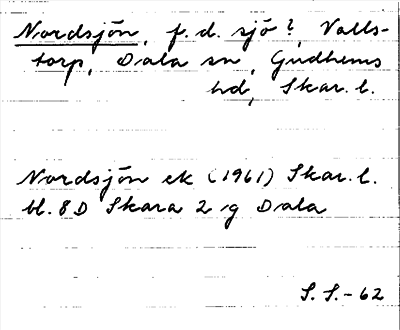 Nordsjön, f. d. sjö?, Valls-
torp, Dala sn, Gudhems
hd, Skar. l.
Nordsjön ek (1961) Skar. l.
bl. 8D Skara 2 g Dala
S. S.-62